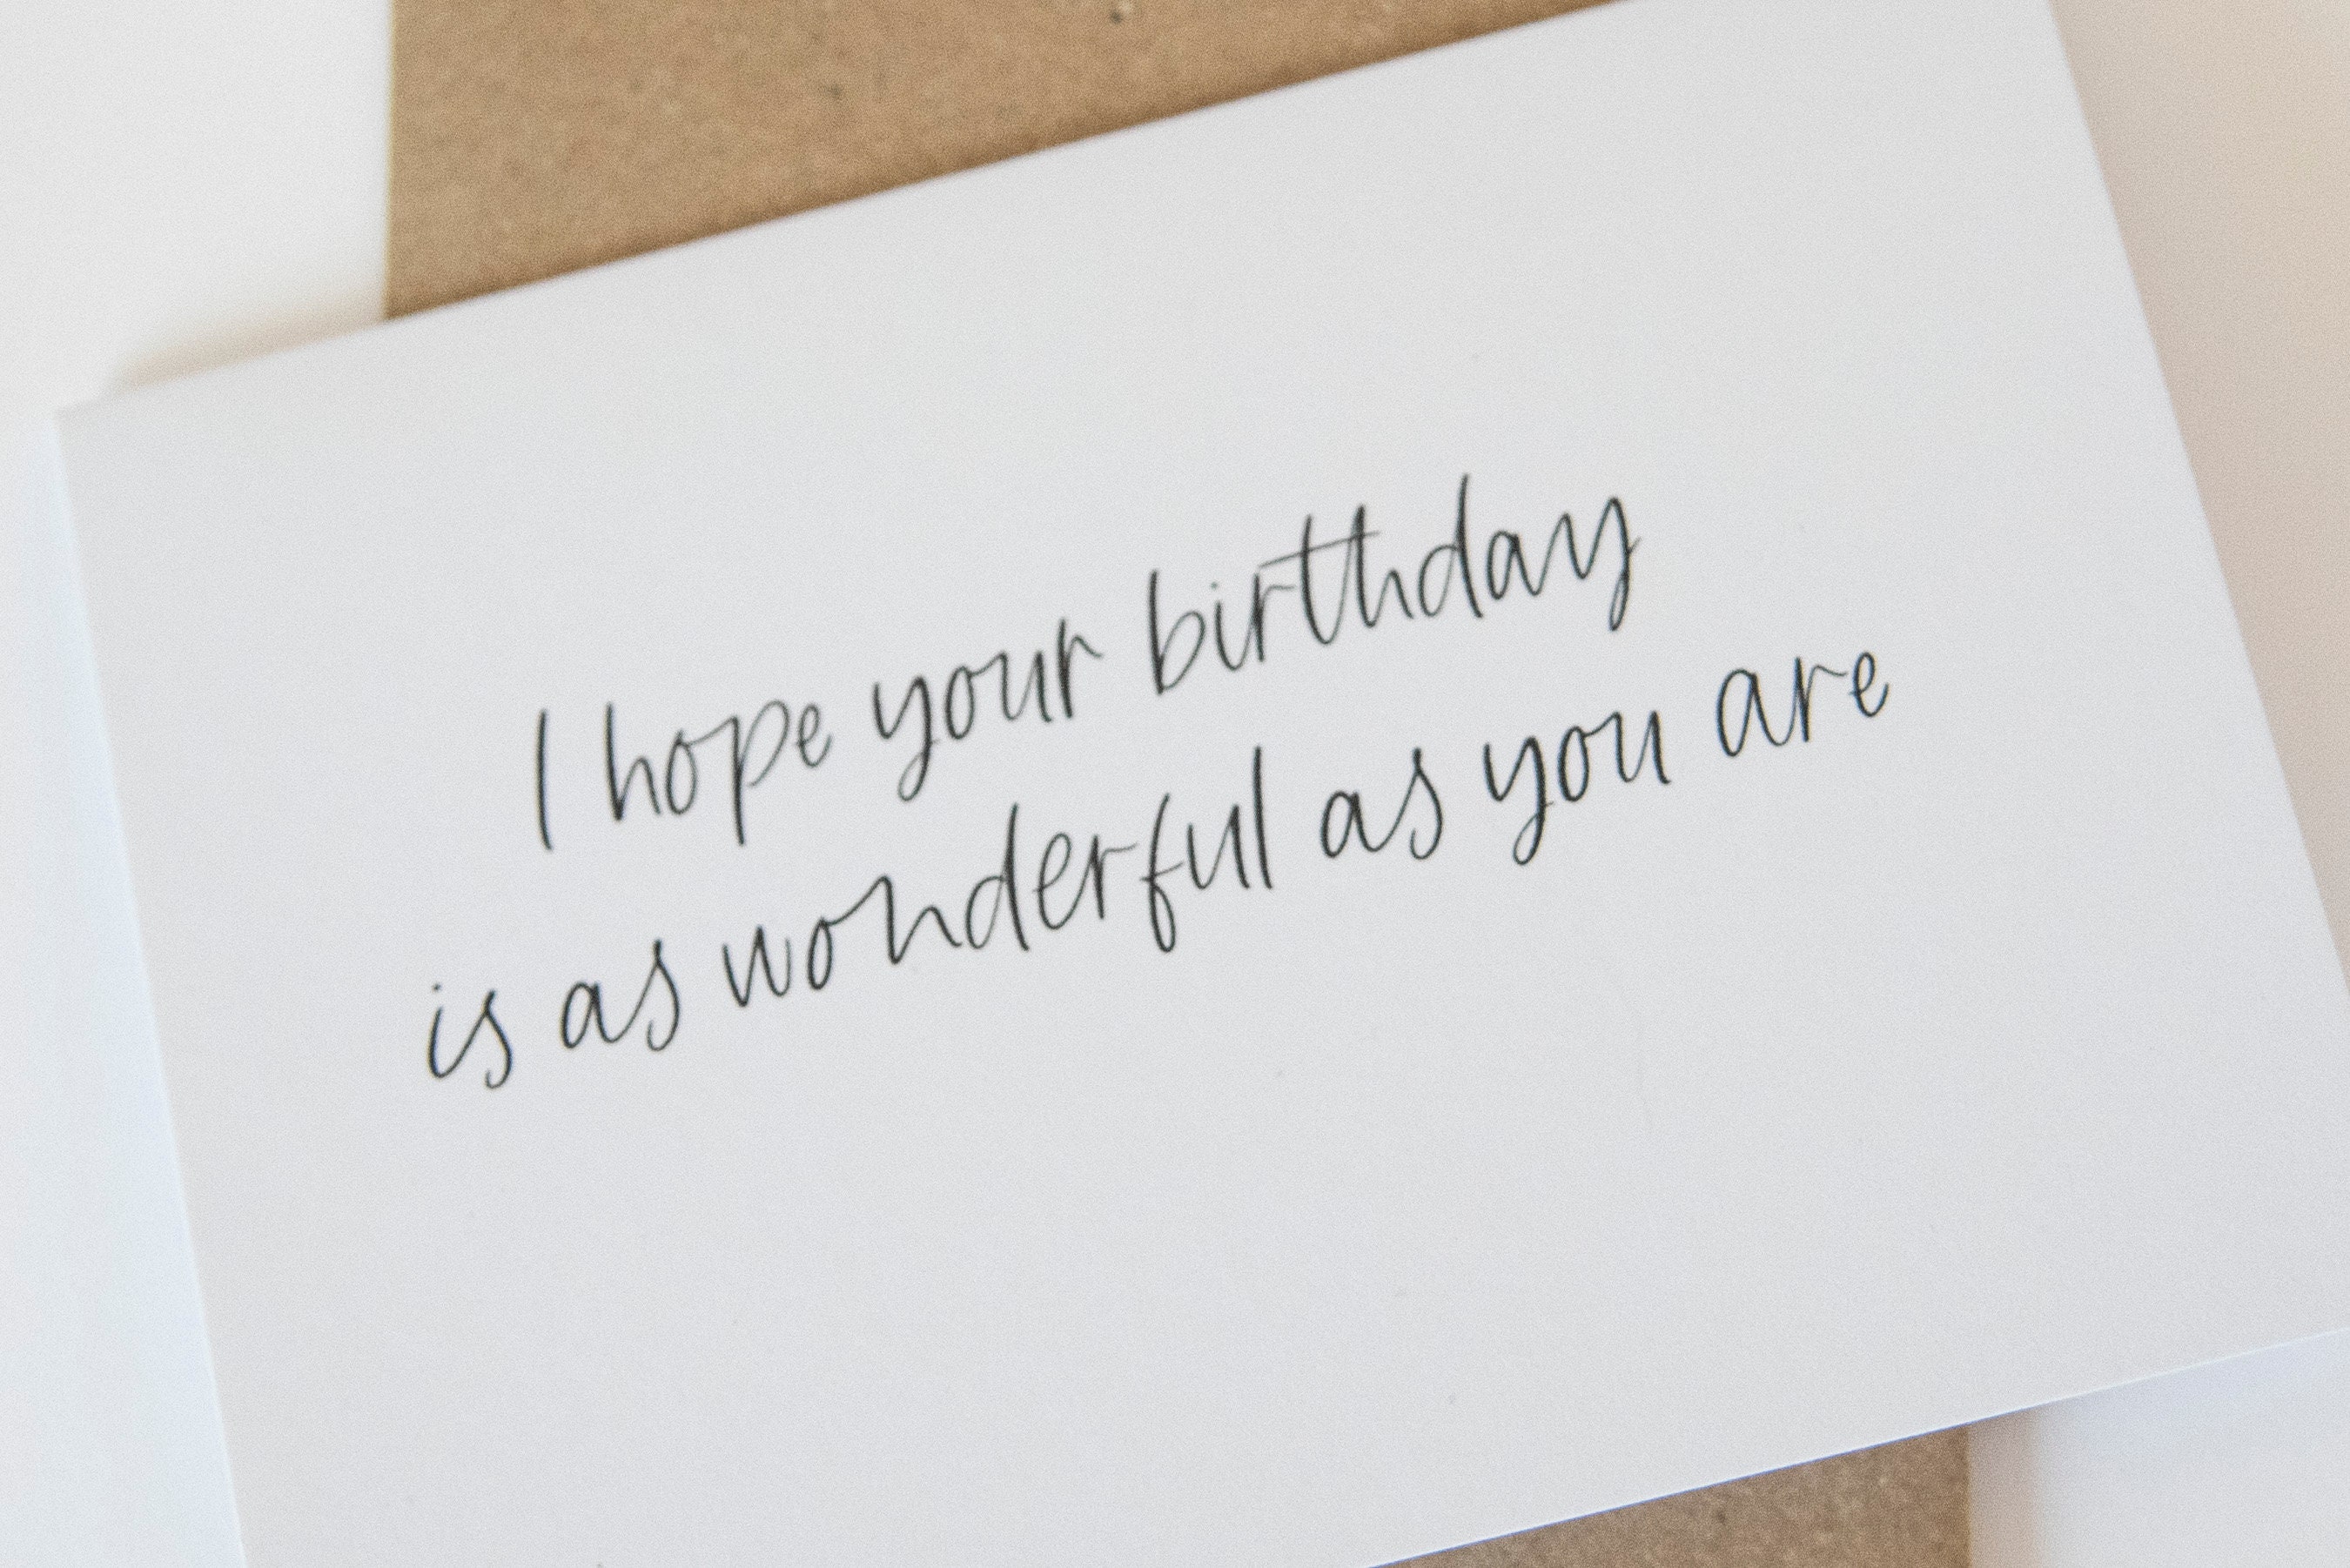 I hope your birthday
is as wonderful as you are